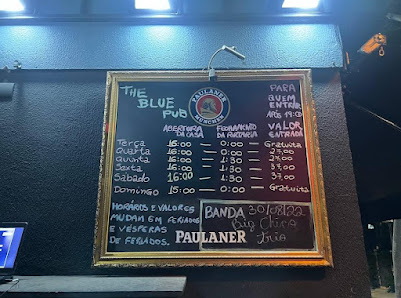 THE
BLUE
PUB
PAULANER
MÜNCHEN
PARA
QUEM
ENTRAR
APÓS 19:00
ABERTURA
DA CASA
FECHAMENTO
DA PORTARIA
VALOR
ENTRADA
Terça 15:00 — 0:00 — Gratuita
Quarta 15:00 — 0:00 — 25,00
Quinta 15:00 — 1:30 — 28,00
Sexta 15:00 — 1:30 — 37,00
Sábado 16:00 — 1:30 — 37,00
Domingo 15:00 — 0:00 — Gratuita
HORÁRIOS E VALORES
MUDAM EM FERIADOS
E VÉSPERAS
DE FERIADOS.
PAULANER
BANDA 30/08/22
Big China
Trio